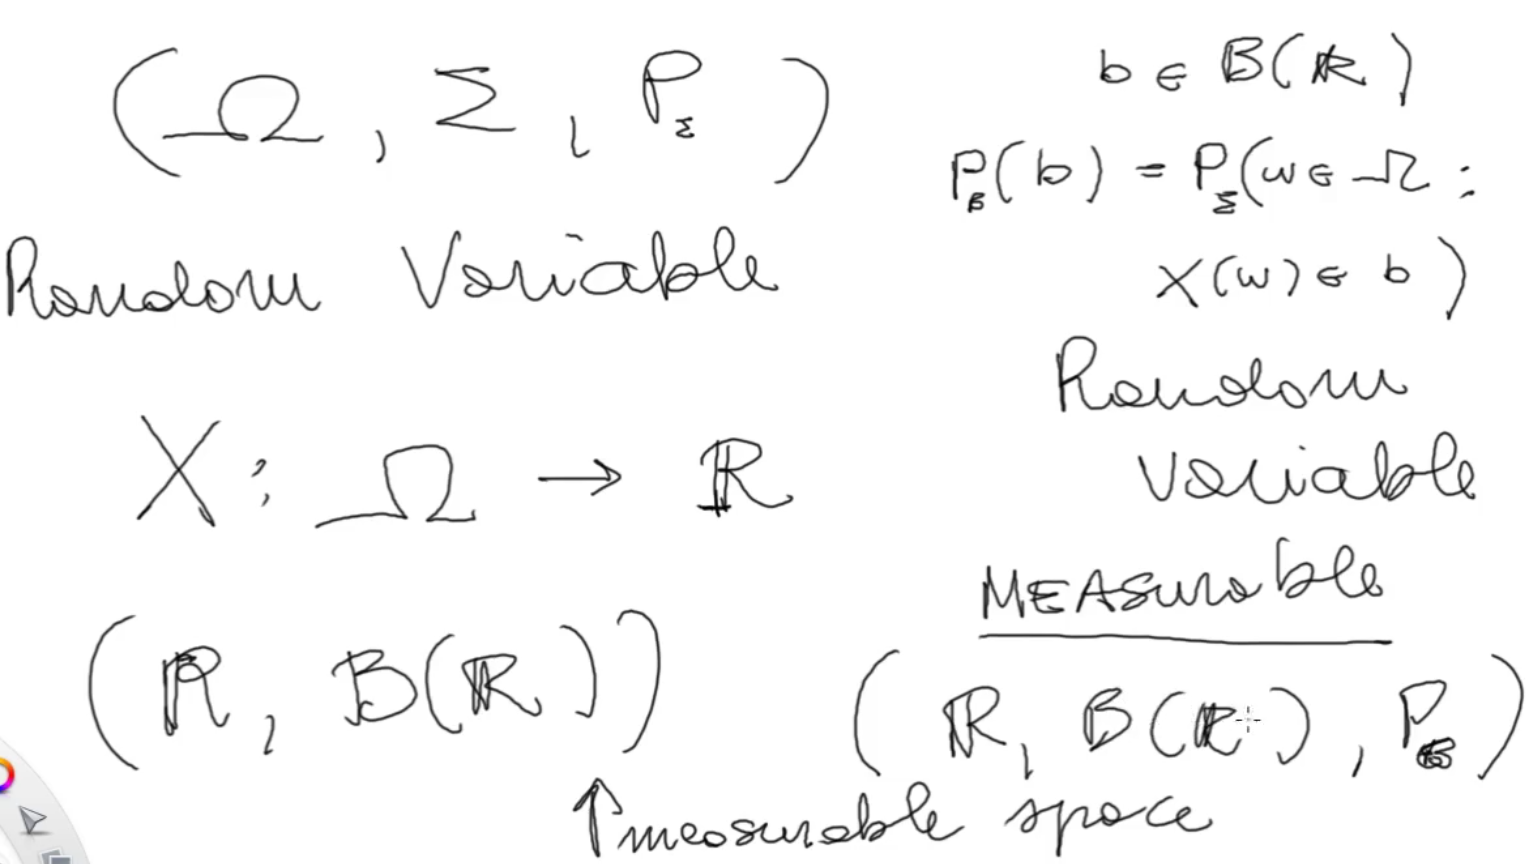 (Ω, Σ, P_Σ)
Random Variable
X: Ω → ℝ
(ℝ, B(ℝ))
↑measurable space
b ∈ B(ℝ)
P_B(b) = P_Σ(w ∈ Ω :
X(w) ∈ b)
Random
Variable
MEASurable
(ℝ, B(ℝ), P_B)